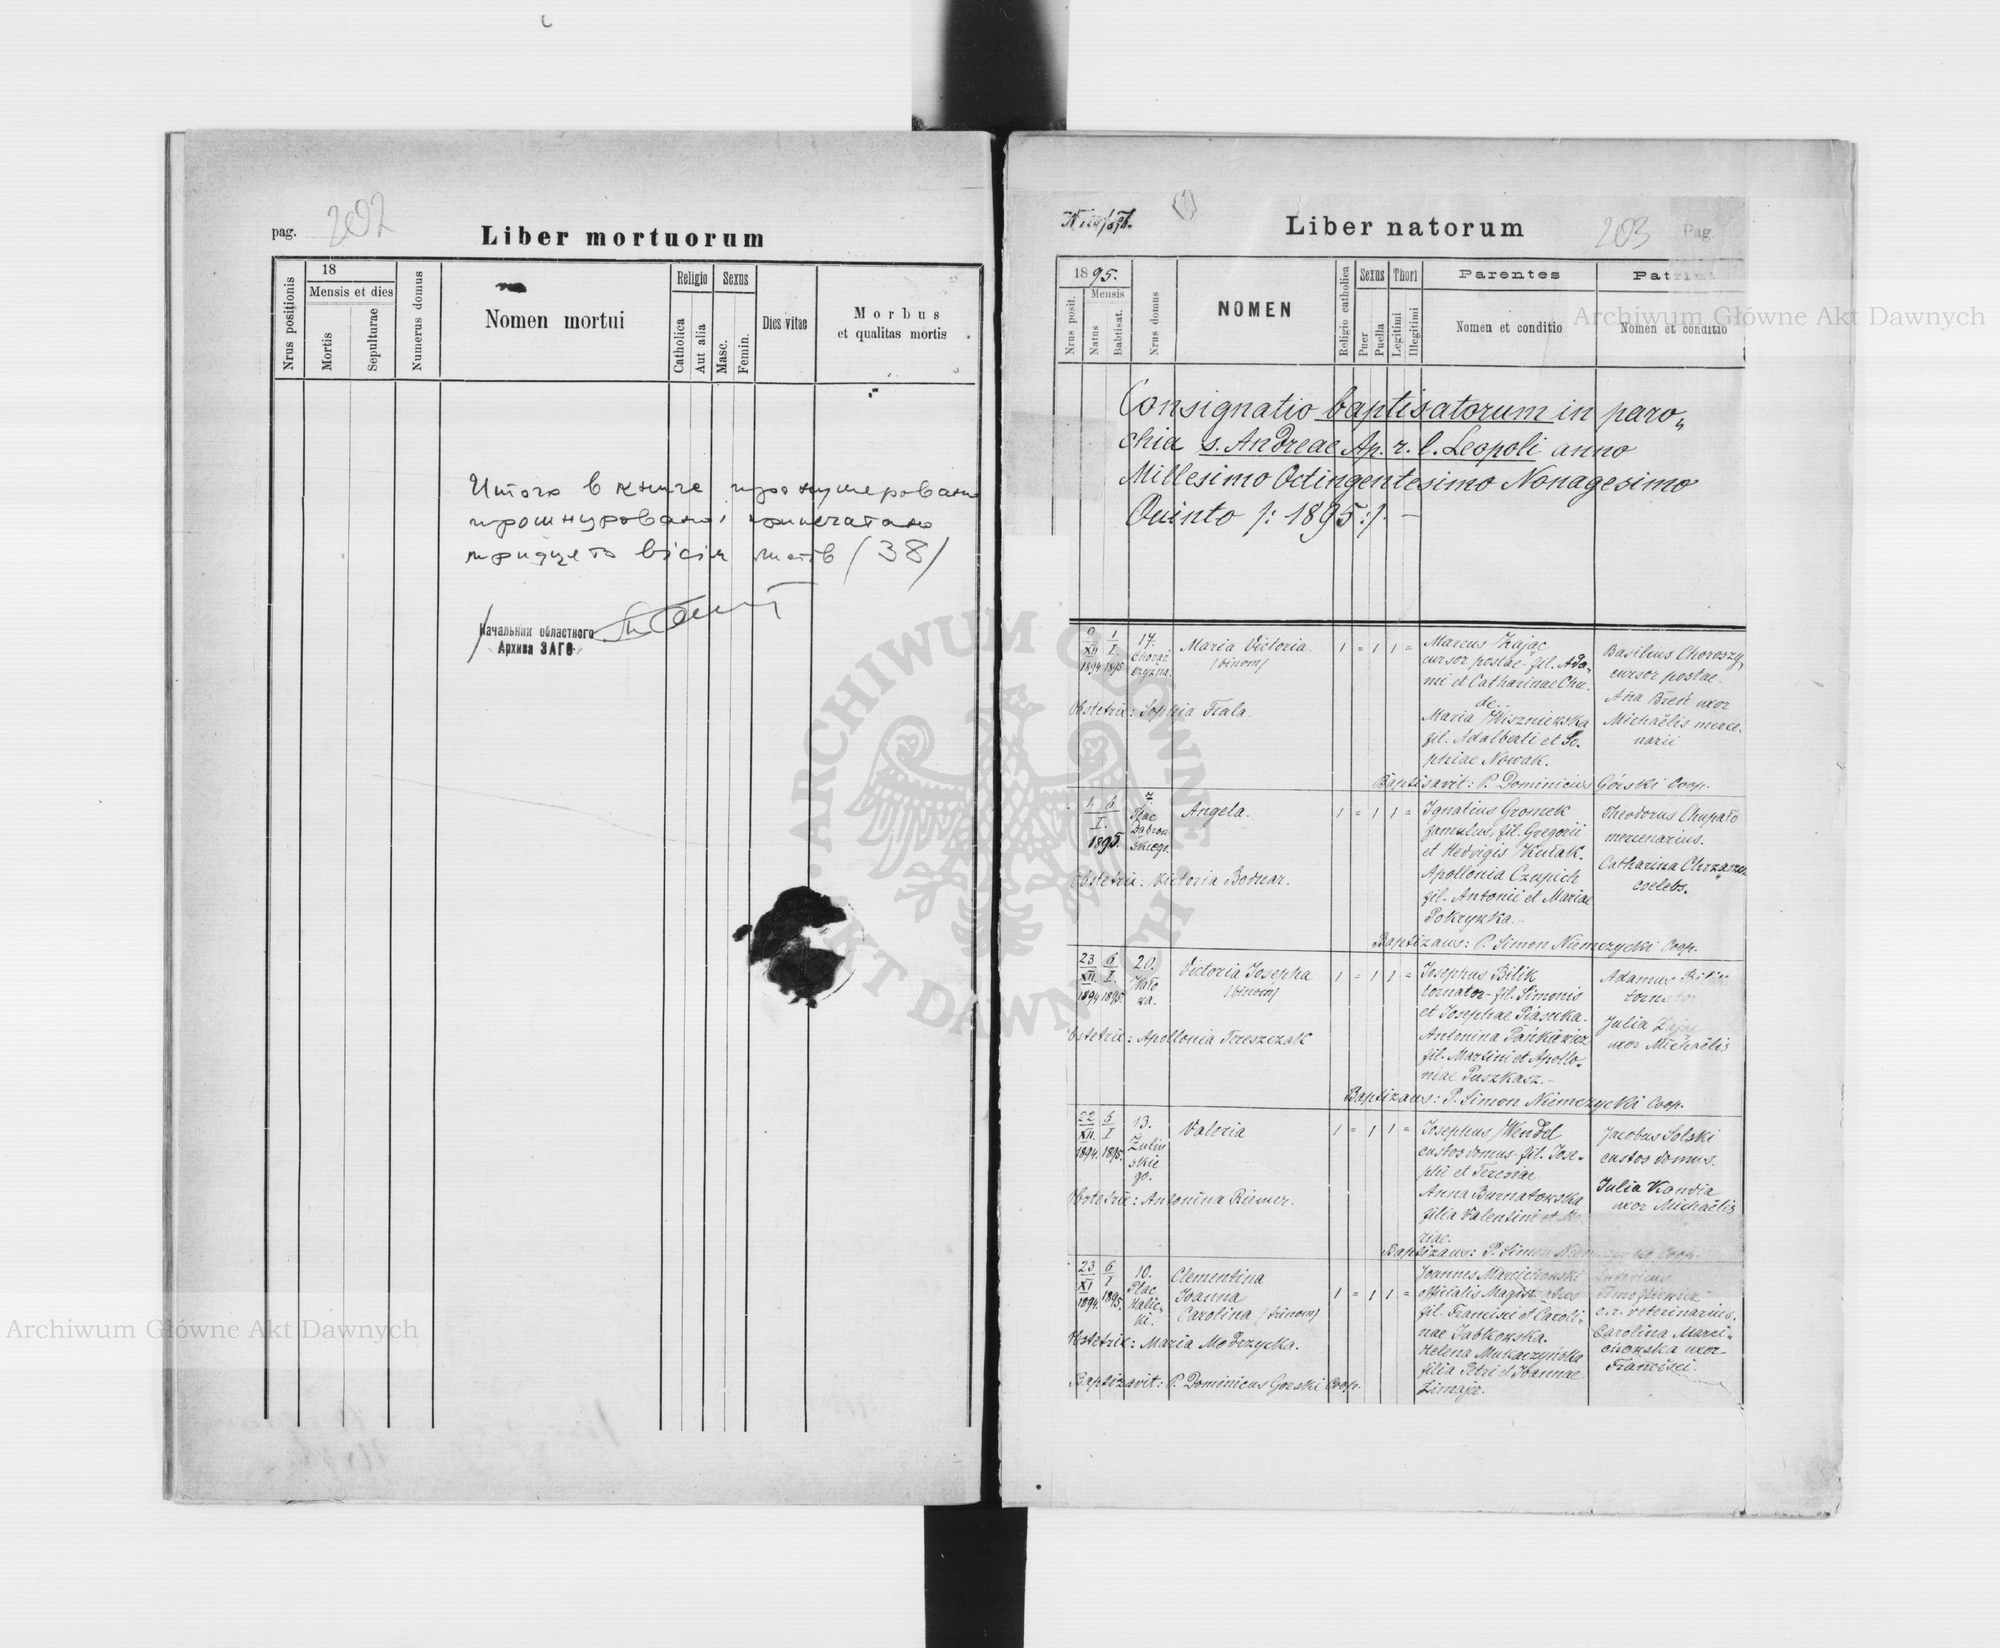 pag. 202
Liber mortuorum
Nrus positionis
18
Mensis et dies
Mortis
Sepulturae
Numerus domus
Nomen mortui
Religio
Catholica
Aut alia
Sexus
Masc.
Femin.
Dies vitae
Morbus
et qualitas mortis
Итого в книге пронумеровано
прошнуровано, припечатано
тридцять вісім листів /38/
Начальник областного
Архива ЗАГС
Liber natorum
203
Pag.
1895.
Nrus posit.
Mensis
Natus
Babtisat.
Nrus domus
NOMEN
Religio catholica
Sexus
Puer
Puella
Thori
Legitimi
Illegitimi
Parentes
Nomen et conditio
Patrini
Nomen et conditio
Consignatio baptisatorum in paro„
chia s. Andreae Ap. r. l. Leopoli anno
Millesimo Octingentesimo Nonagesimo
Quinto /: 1895 :/. —
9 XII 1894
1 I. 1895
17. Chorąż czyzna.
Maria Victoria.
/binom/
1 = 1 1 =
Marcus Zając
cursor postae - fil. Ada-
mi et Catharinae Chu-
de.
Maria Wiszniewska
fil. Adalberti et So-
phiae Nowak.
Basilius Choroszy,
cursor postae.
Aña Breń uxor
Michaëlis merce-
narii
Obstetrix: Sophia Fiala.
Baptisavit: P. Dominicus Górski Coop.
1. 6 I. 1895.
7. Plac Dąbrow skiego.
Angela.
1 = 1 1 =
Ignatius Gromek
famulus, fil. Gregorii
et Hedvigis Kułak.
Apollonia Czupich
fil. Antonii et Mariae
Pokrywka.
Theodorus Chupało
mercenarius.
Catharina Chrząszcz
coelebs.
Obstetrix: Victoria Bodnar.
Baptizans: P. Simon Niemczycki Coop.
23 XII. 1894
6 I. 1895.
20.
Victoria Josepha
/binom/
1 = 1 1 =
Josephus Bilik
tornator - fil. Simonis
et Josephae Piasecka.
Antonina Pańkiewicz
fil. Martini et Apollo-
niae Puszkasz.
Adamus Bilik
tornator
Julia
uxor Michaëlis
Obstetrix: Apollonia Tereszczak
Baptizans: P. Simon Niemczycki Coop.
22 XII. 1894.
5 I 1895.
13. Żuliń skie go.
Valeria
1 = 1 1 =
Josephus Wendel
custos domus - fil. Jose-
phi et Teresiae
Anna Burnatowska
filia Valentini et Ma
riae.
Jacobus Solski
custos domus.
Julia Kandia
uxor Michaëlis
Obstetrix: Antonina Riemer.
Baptizans: P. Simon Niemczycki Coop.
23 XI 1894.
6 I 1895.
10. Plac Halic- ki.
Clementina
Joanna
Carolina (trinom)
1 = 1 1 =
Joannes Marcichowski
officialis Magistratus
fil. Francisci et Caroli-
nae Jabłkowska.
Helena Mukaczyńska
filia Petri et Joannae
Zimajer.
Ludovicus
Timoftiewicz
c.r. veterinarius.
Carolina Marci-
chowska uxor
Francisci.
Obstetrix: Maria Modrzycka.
Baptizavit: P. Dominicus Gorski Coop.
ARCHIWUM GŁÓWNE AKT DAWNYCH
Archiwum Główne Akt Dawnych
Archiwum Główne Akt Dawnych